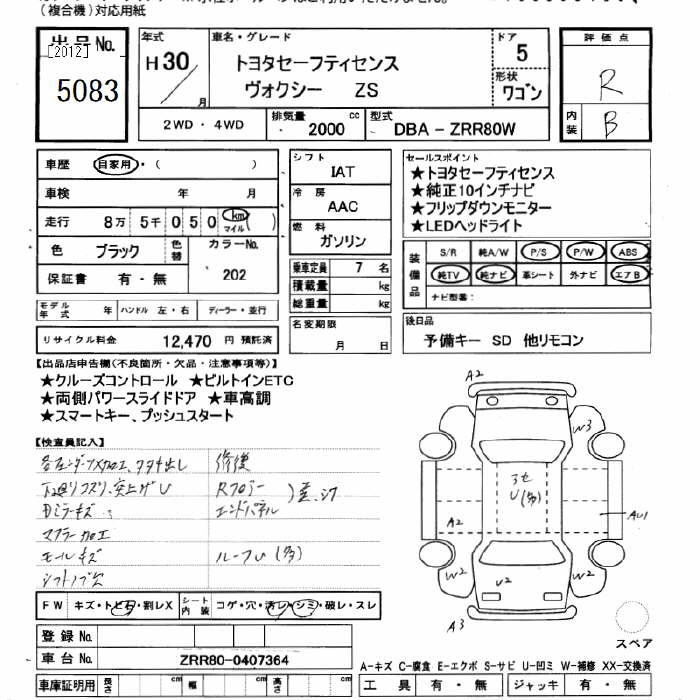 (複合機)対応用紙
出品No.
[2012]
5083
年式
H30
月
車名・グレード
トヨタセーフティセンス
ヴォクシー ZS
ドア
5
形状
ワゴン
評価点
R
内装
B
2WD・4WD
排気量
2000 cc
型式
DBA - ZRR80W
車歴 自家用・( )
車検 年 月
走行 8万 5千 0 5 0 km マイル ( )
色 ブラック
色替
カラーNo.
202
保証書 有・無
シフト
IAT
冷房
AAC
燃料
ガソリン
乗車定員 7 名
積載量 kg
総重量 kg
セールスポイント
★トヨタセーフティセンス
★純正10インチナビ
★フリップダウンモニター
★LEDヘッドライト
装備品
S/R 純A/W P/S P/W ABS
純TV 純ナビ 革シート 外ナビ エアB
ナビ型番:
モデル年式 年 ハンドル 左・右 ディーラー・並行
リサイクル料金 12,470 円 預託済
名変期限
月 日
後日品
予備キー SD 他リモコン
【出品店申告欄(不良箇所・欠品・注意事項等)】
★クルーズコントロール ★ビルトインETC
★両側パワースライドドア ★車高調
★スマートキー、プッシュスタート
【検査員記入】
修復
Rフロアー
エンドパネル
歪、汁
Dミラーキズ
マフラー加工
モールキズ
ルーフU(多)
シフトノブ欠
A2
W3
3セ
U(多)
A2
AU1
W2
U2
W2
A3
スペア
FW キズ・トビ石・割レX
シート内装 コゲ・穴・汚レ・シミ・破レ・スレ
登録No.
車台No. ZRR80-0407364
A-キズ C-腐食 E-エクボ S-サビ U-凹ミ W-補修 XX-交換済
車庫証明用 長さ cm 幅 cm 高さ cm
工具 有・無 ジャッキ 有・無